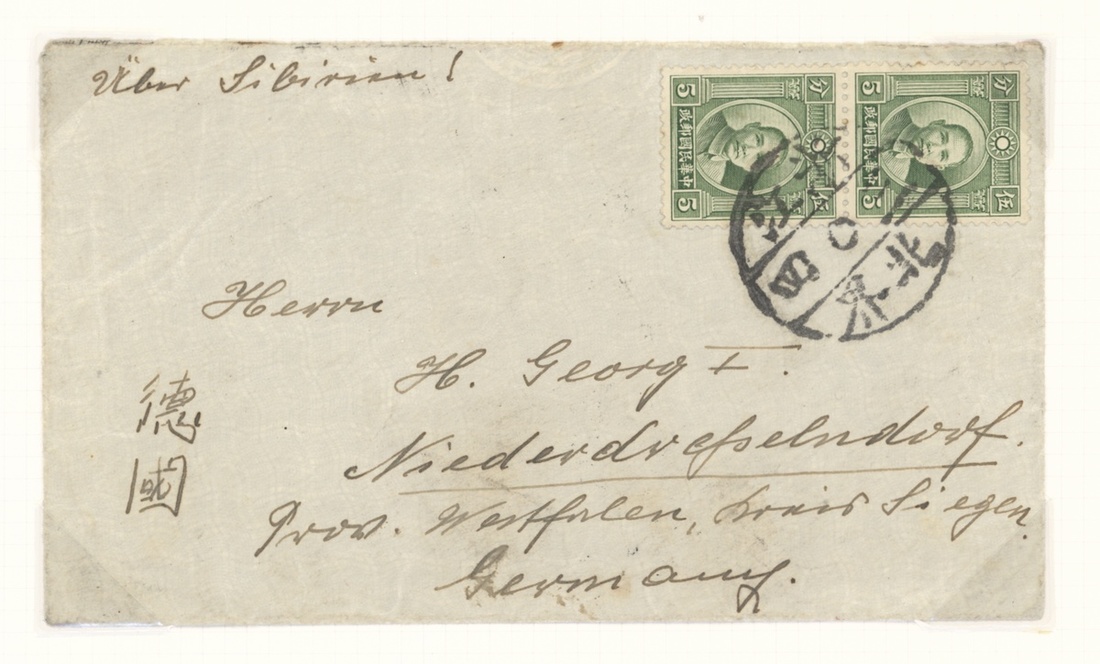 Über Sibirien!
Herrn
H. Georg I.
Niederdresselndorf.
Prov. Westfalen, Kreis Siegen.
Germany.
德
國
5 分 5
中華民國郵政
5 伍 5
5 分 5
中華民國郵政
5 伍 5